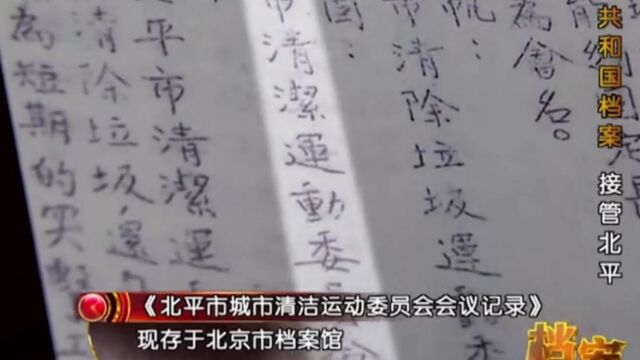 為會名。
市清除垃圾運動委
市清潔運動委員
平市清潔運
清除垃圾運
為短期的突擊工
共和国档案 接管北平
《北平市城市清洁运动委员会会议记录》
现存于北京市档案馆
档案